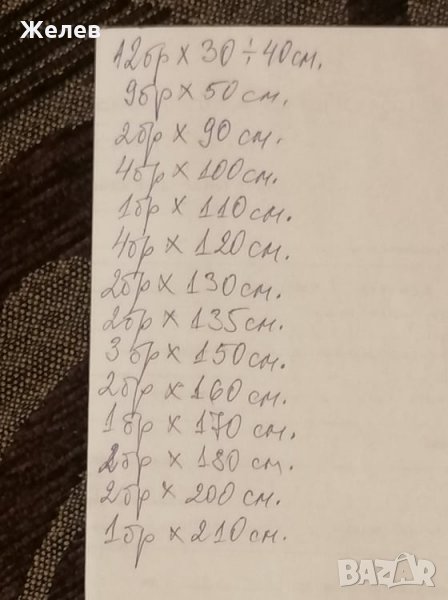 Желев
12бр x 30÷40см.
9бр x 50см.
2бр x 90см.
4бр x 100см.
1бр x 110см.
4бр x 120см.
2бр x 130см.
2бр x 135см.
3бр x 150см.
2бр x 160см.
1бр x 170см.
2бр x 180см.
2бр x 200см.
1бр x 210см.
BAZAR